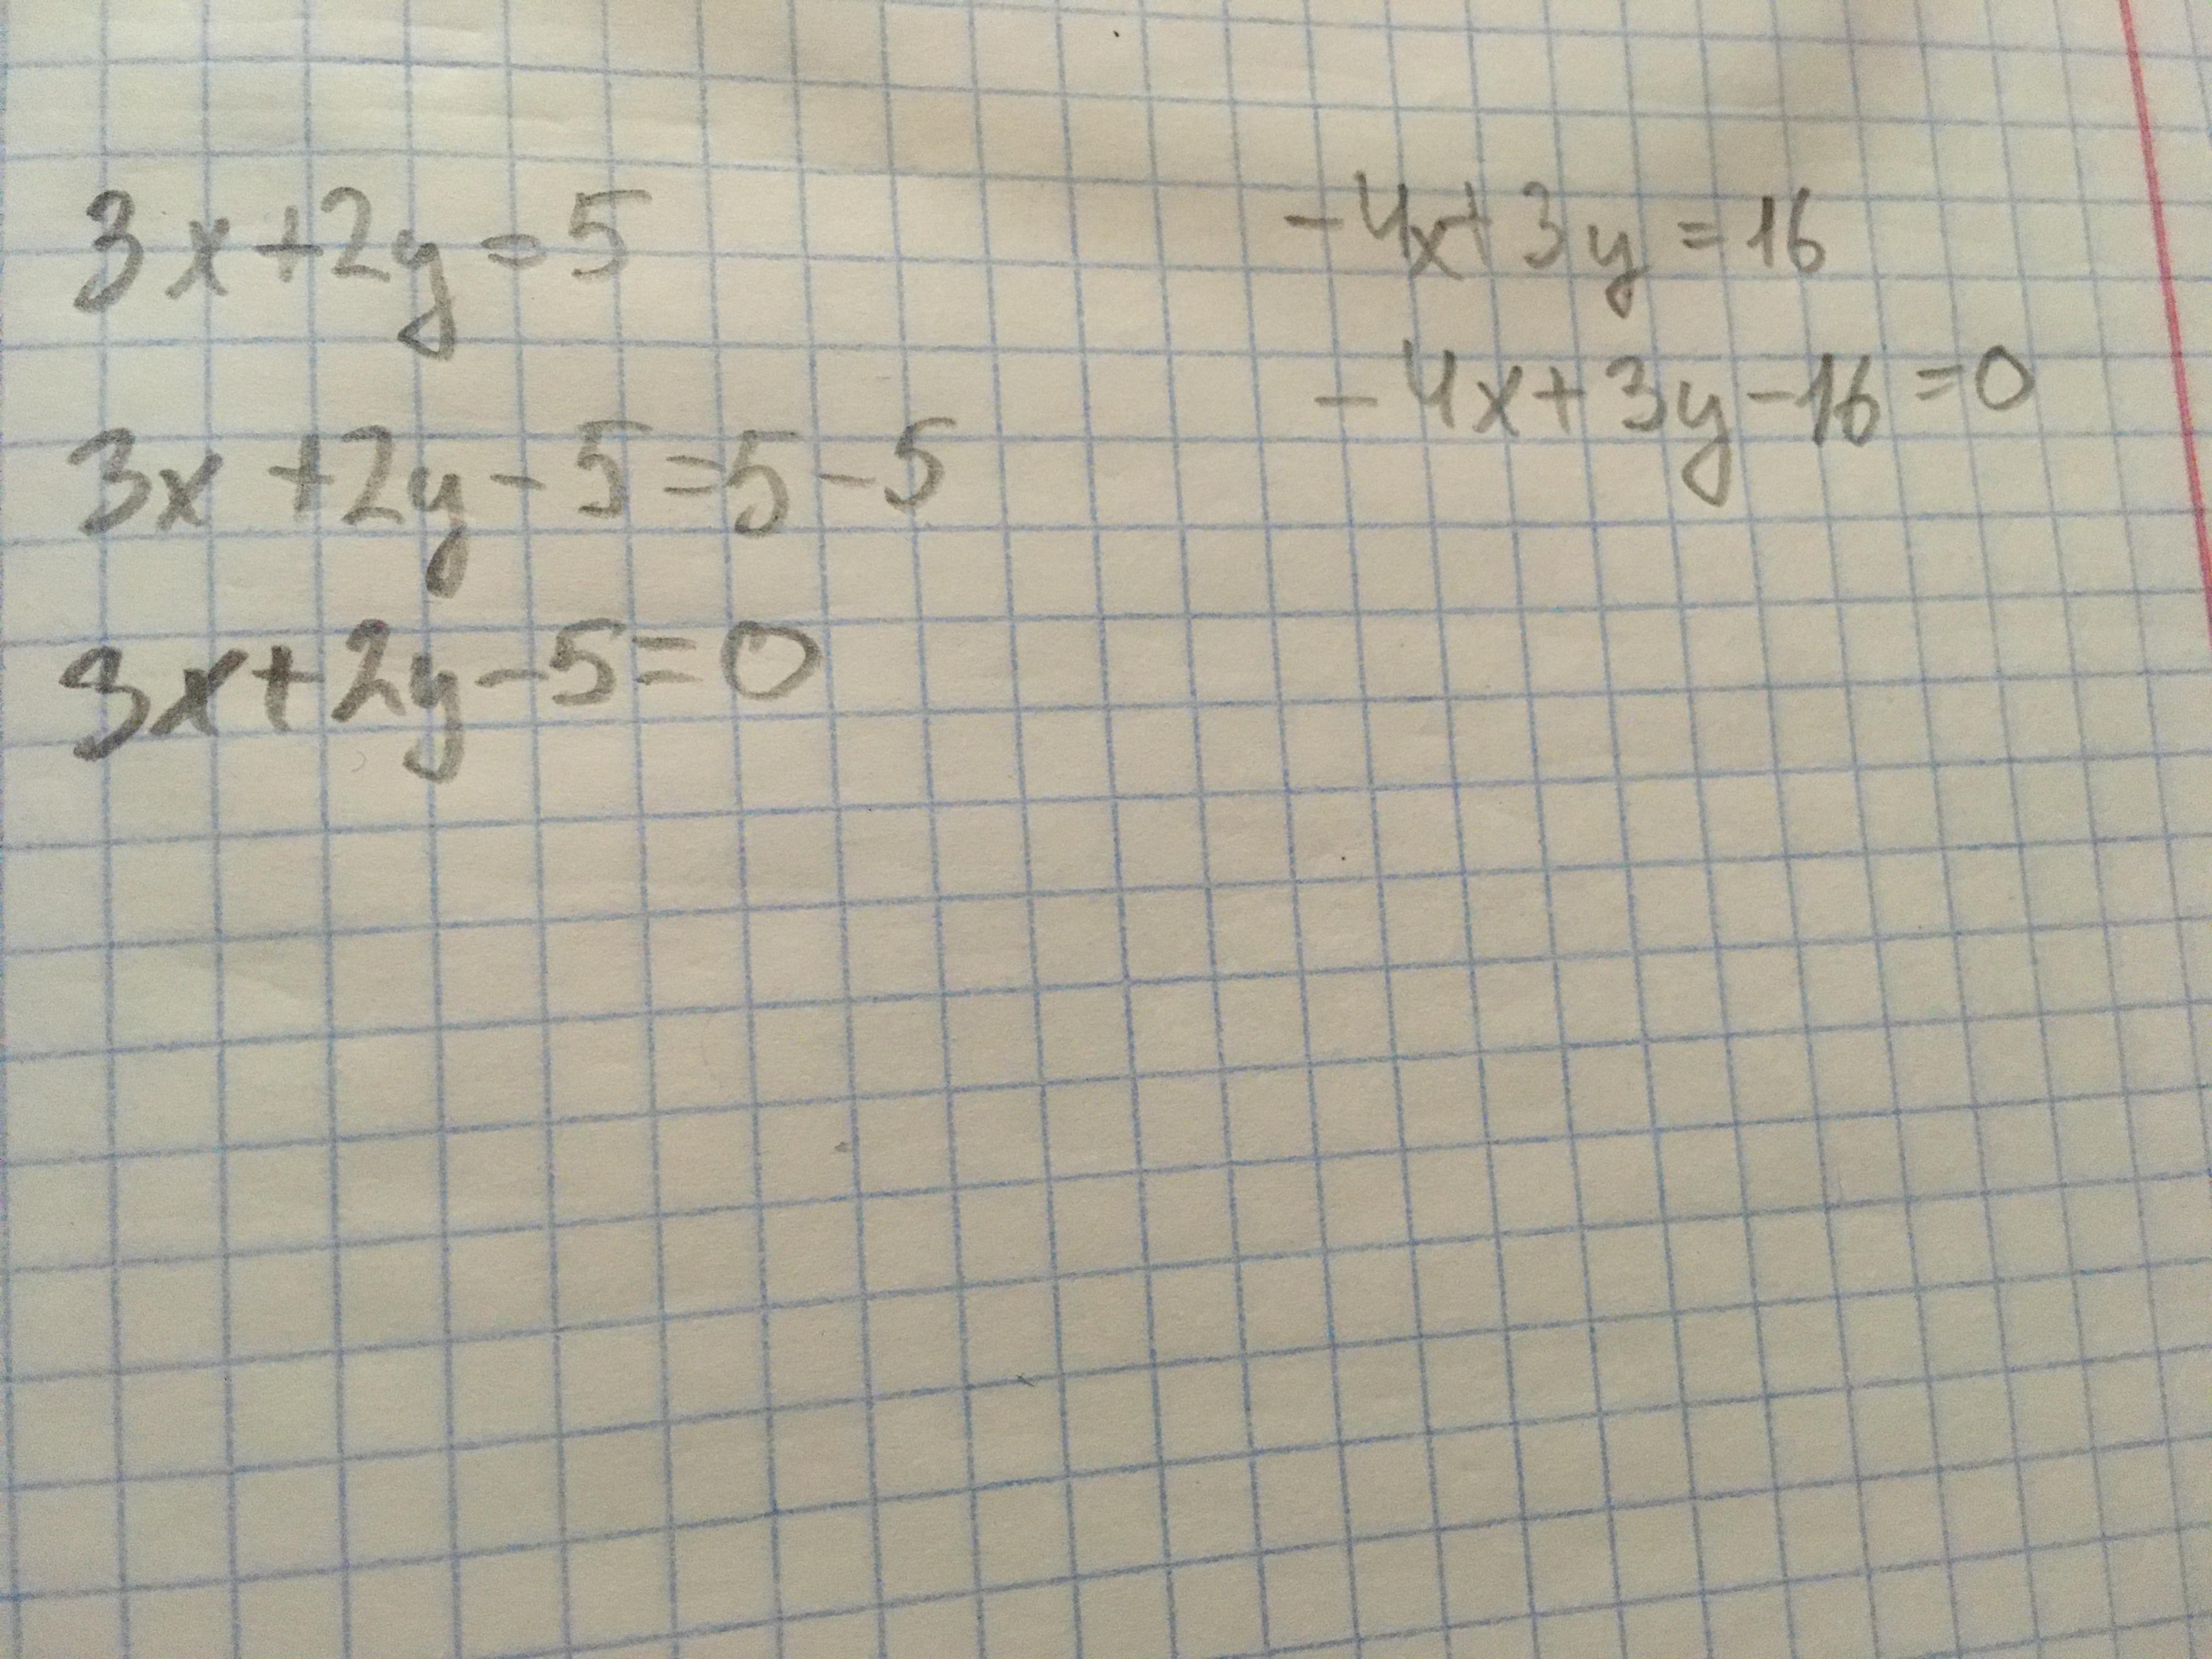 3x+2y=5
3x+2y-5=5-5
3x+2y-5=0
-4x+3y=16
-4x+3y-16=0